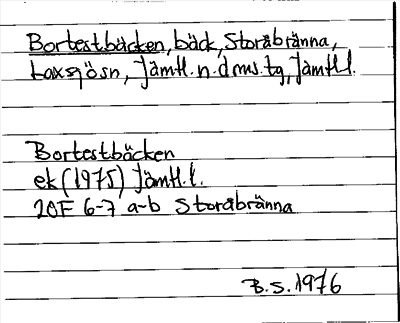 Bortestbäcken, bäck, Storåbränna,
Laxsjösn, Jämtl.n.dms.tg, Jämtl l.
Bortestbäcken
ek (1975) Jämtl. l.
20F 6-7 a-b Storåbränna
B.S. 1976